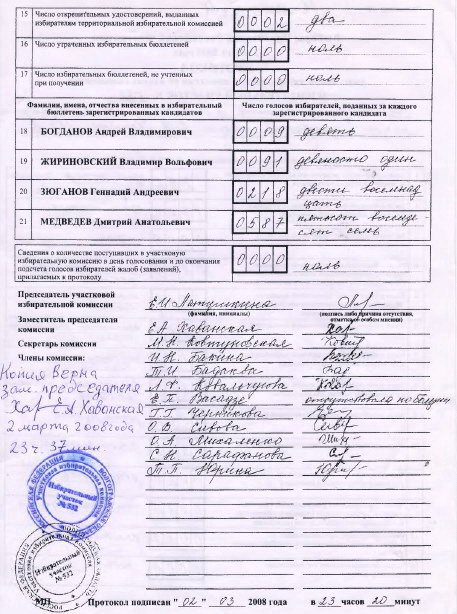 15 Число открепительных удостоверений, выданных
избирателям территориальной избирательной комиссией 0002 два
16 Число утраченных избирательных бюллетеней 0000 ноль
17 Число избирательных бюллетеней, не учтенных
при получении 0000 ноль
Фамилии, имена, отчества внесенных в избирательный
бюллетень зарегистрированных кандидатов
Число голосов избирателей, поданных за каждого
зарегистрированного кандидата
18 БОГДАНОВ Андрей Владимирович 0009 девять
19 ЖИРИНОВСКИЙ Владимир Вольфович 0091 девяносто один
20 ЗЮГАНОВ Геннадий Андреевич 0218 двести восемнад
цать
21 МЕДВЕДЕВ Дмитрий Анатольевич 0587 пятьсот восемде-
сят семь
Сведения о количестве поступивших в участковую
избирательную комиссию в день голосования и до окончания
подсчета голосов избирателей жалоб (заявлений),
прилагаемых к протоколу 0000 ноль
Председатель участковой
избирательной комиссии Е.И.
(фамилия, инициалы) (подпись либо причина отсутствия,
отметка об особом мнении)
Заместитель председателя
комиссии Е.А. Хаванская
Секретарь комиссии М.Н. Ковтуновская
Члены комиссии: И.К. Бакина
Т.И.
Л.Х.
Е.П. Васадзе отсутствовала по болезни
Т.Т. Черникова
О.В. Сивова
О.А. Михаленко
С.Н. Сарафанова
Т.П. Юрина
Копия Верна
зам. председателя
Хав Е.А. Хаванская
2 марта 2008 года
23 ч. 37 мин.
Избирательный
участок
№ 532
Избирательный
участок
№ 532
МП Протокол подписан "02" 03 2008 года в 23 часов 20 минут